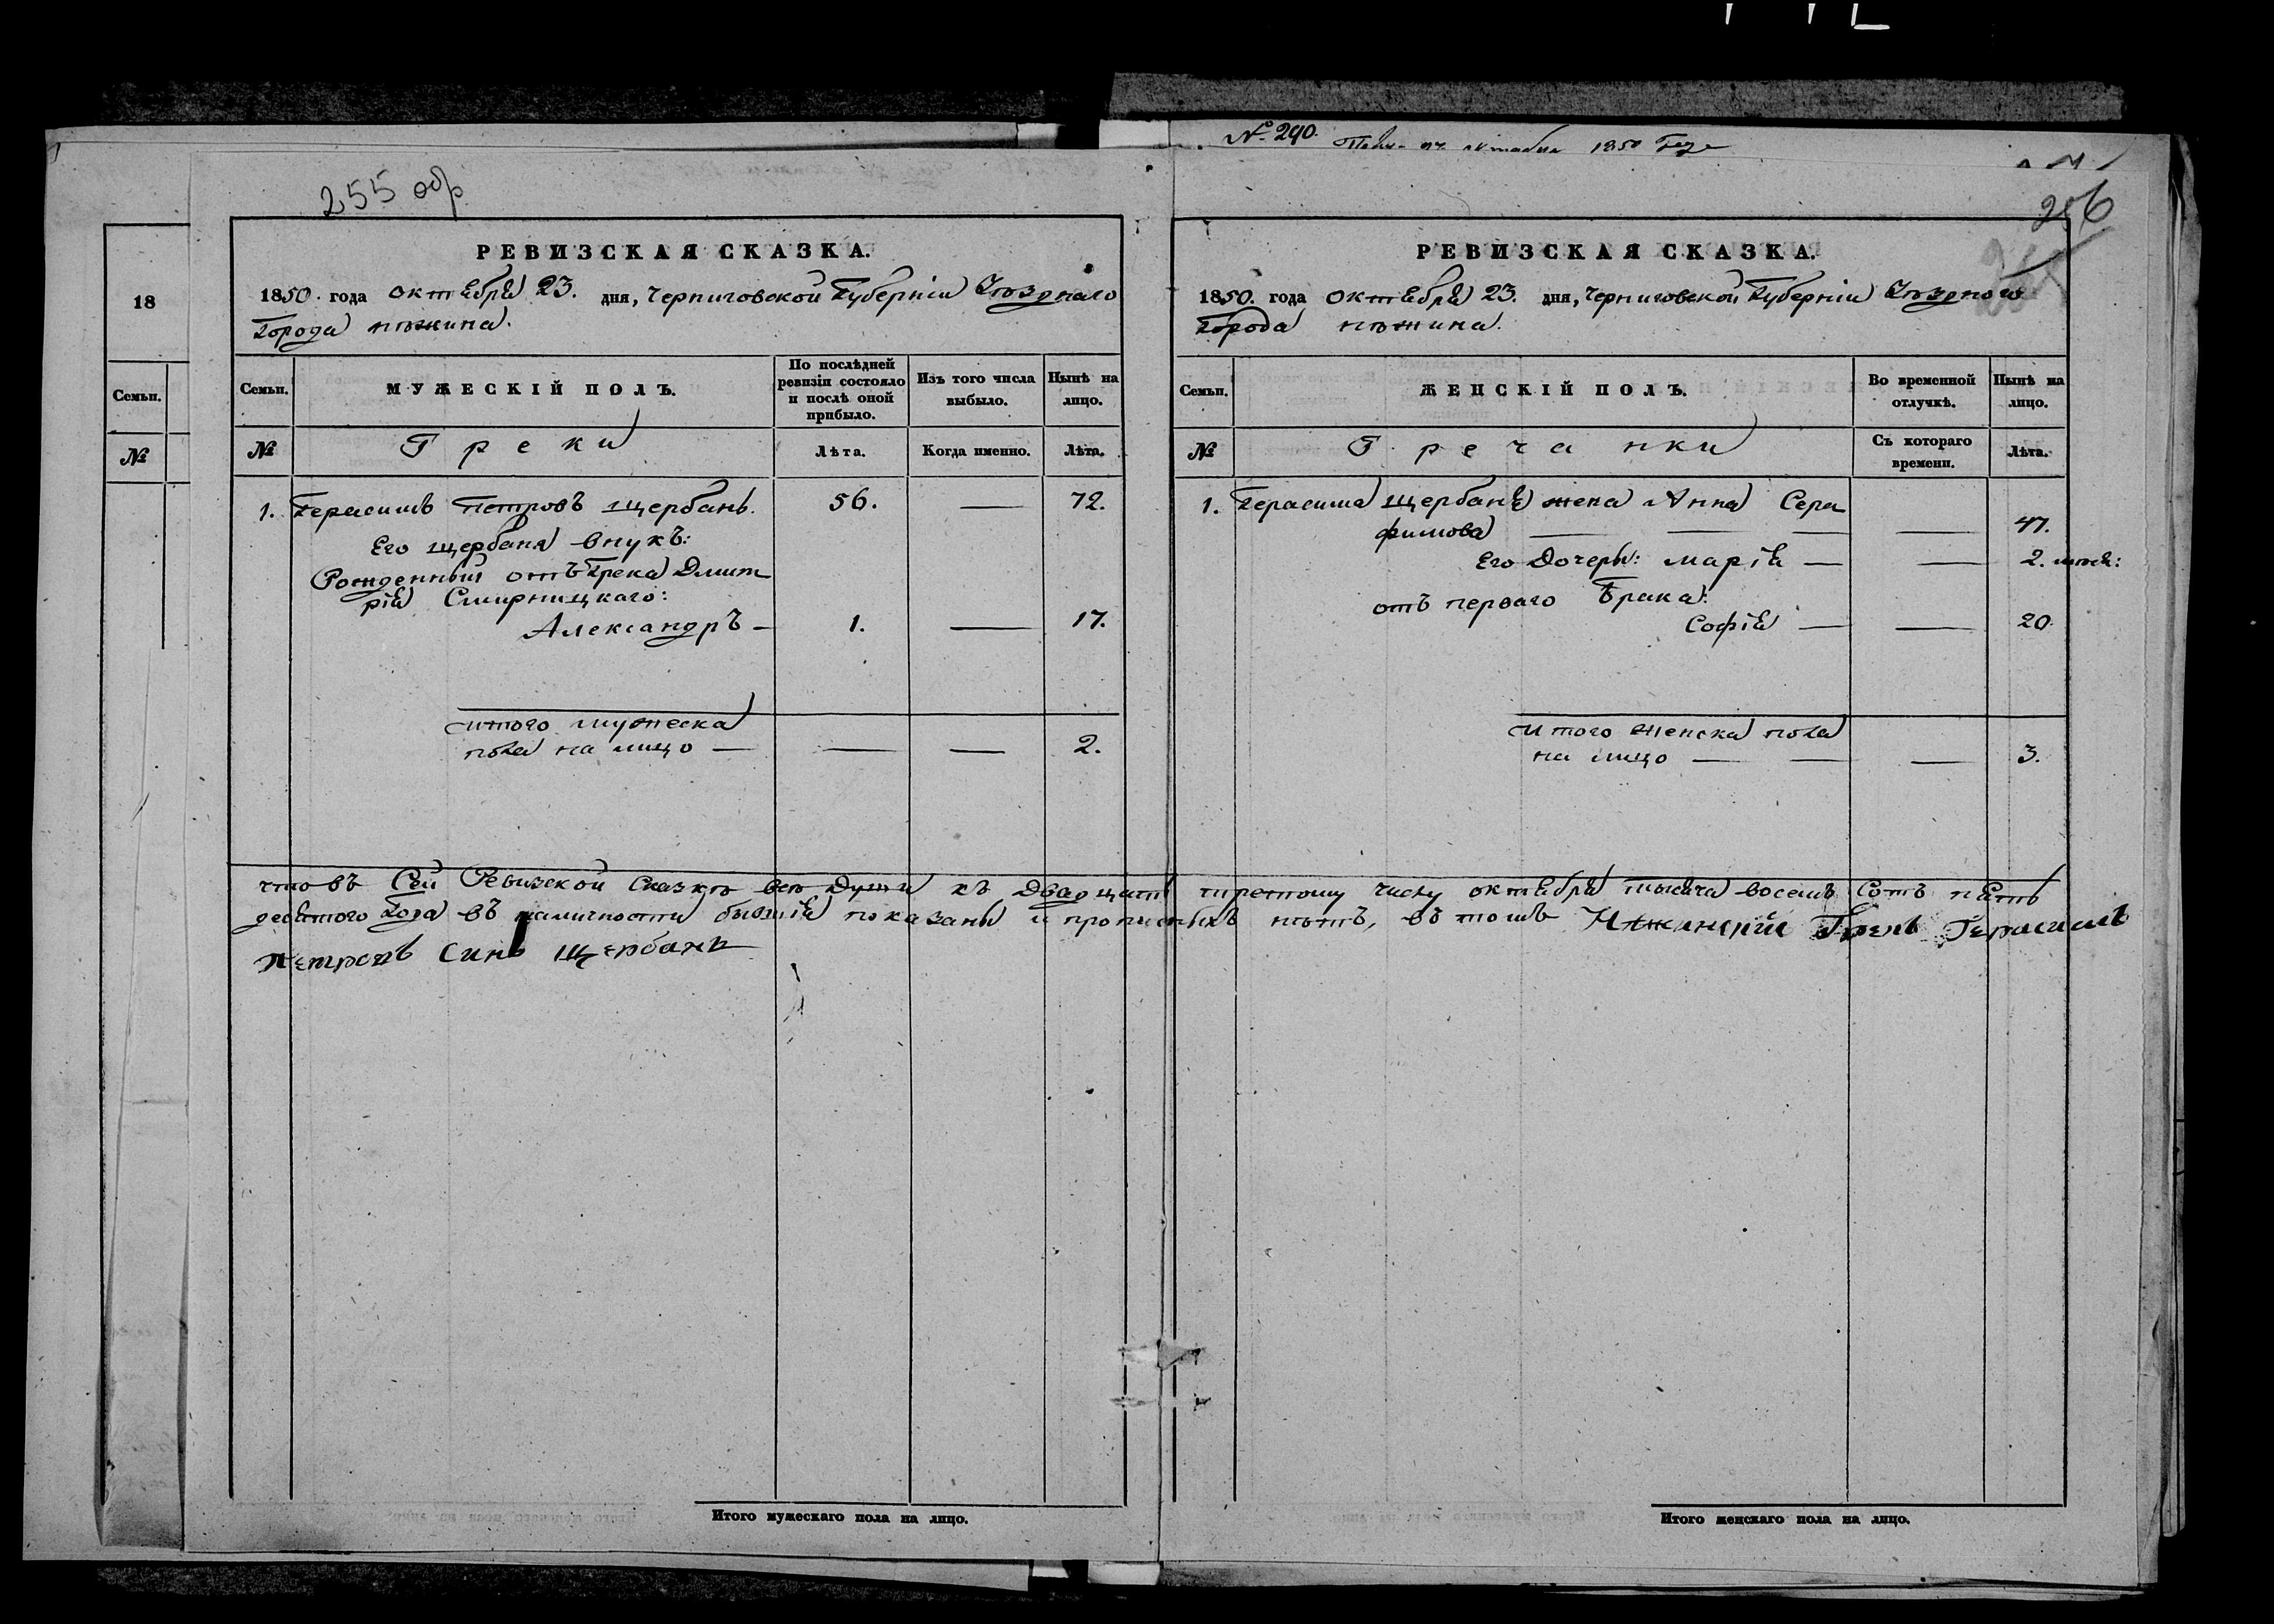 № 290. октября 1850 года
255 об.
256
18
Семьи.
№
РЕВИЗСКАЯ СКАЗКА.
1850. года октября 23. дня, Черниговской Губерніи Уѣзднаго
Города нѣжина.
Семьи. МУЖЕСКІЙ ПОЛЪ. По послѣдней ревизіи состояло и послѣ оной прибыло. Изъ того числа выбыло. Нынѣ на лицо.
№ Греки Лѣта. Когда именно. Лѣта.
1. Герасимъ Петровъ щербань. 56. — 72.
Его щербаня внукъ:
Рожденный отъ Грека Дмит
рія Смирницкаго:
Александръ — 1. — 17.
итого мужеска
пола на лицо — — — 2.
РЕВИЗСКАЯ СКАЗКА.
1850. года октября 23. дня, Черниговской Губерніи Уѣзднаго
Города нѣжина.
Семьи. ЖЕНСКІЙ ПОЛЪ. Во временной отлучкѣ. Нынѣ на лицо.
№ Гречанки Съ котораго времени. Лѣта.
1. Герасима щербаня жена Анна Сера
фимова — — — — 47.
Его Дочеры: марія — — 2.
отъ перваго Брака:
Софія — — 20.
итого женска пола
на лицо — — — 3.
что въ Сей Ревизской Сказкѣ всѣ Души къ Двадцать третому числу октября тысяча восемъ Сотъ пять
десятого Года въ наличности бывшія показаны и прописныхъ нѣтъ, въ томъ Нѣжинский Грекъ Герасимъ
Петровъ Синъ щербань
Итого мужескаго пола на лицо.
Итого женскаго пола на лицо.